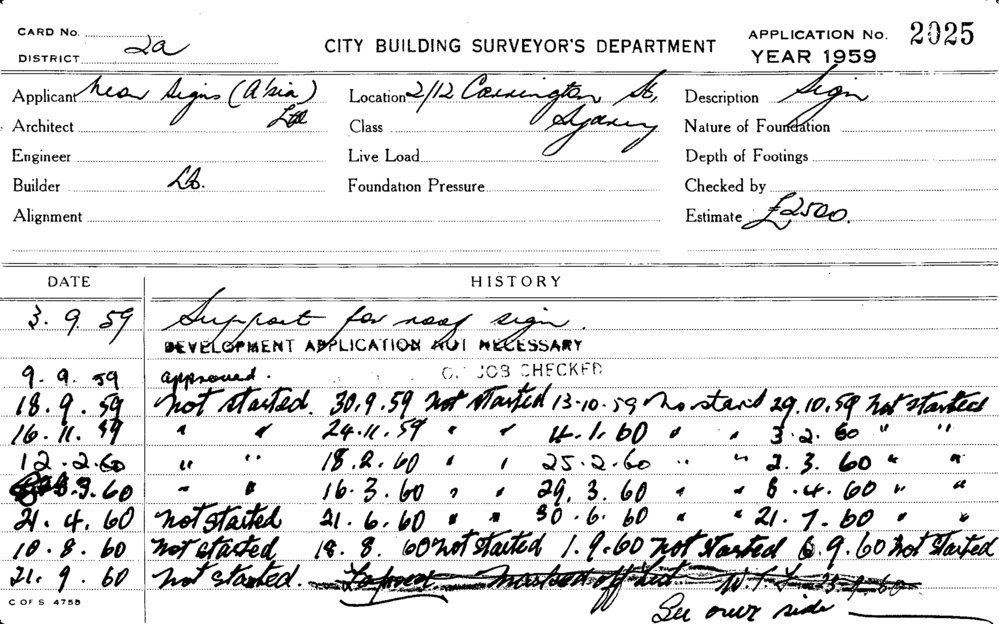 CARD No.
DISTRICT 2a
CITY BUILDING SURVEYOR'S DEPARTMENT
APPLICATION No. 2025
YEAR 1959
Applicant Neon Signs (A'sia) Ltd
Location 2/12 Carrington St, Sydney
Description Sign
Architect
Class
Nature of Foundation
Engineer
Live Load
Depth of Footings
Builder
Foundation Pressure
Checked by
Alignment
Estimate £2500.
DATE HISTORY
3.9.59 Support for roof sign.
DEVELOPMENT APPLICATION NOT NECESSARY
9.9.59 approved. JOB CHECKED
18.9.59 Not started. 30.9.59 Not Started 13.10.59 No start 29.10.59 Not started
16.11.59 " " 24.11.59 " " 4.1.60 " " 3.2.60 " "
12.2.60 " " 18.2.60 " " 25.2.60 " " 2.3.60 " "
.3.60 " " 16.3.60 " " 29.3.60 " " 8.4.60 " "
21.4.60 Not started 21.6.60 " " 30.6.60 " " 21.7.60 " "
10.8.60 Not started 18.8.60 Not started 1.9.60 Not Started 6.9.60 Not Started
21.9.60 Not started. Lapsed Marked off List
See over side
C OF S 4755